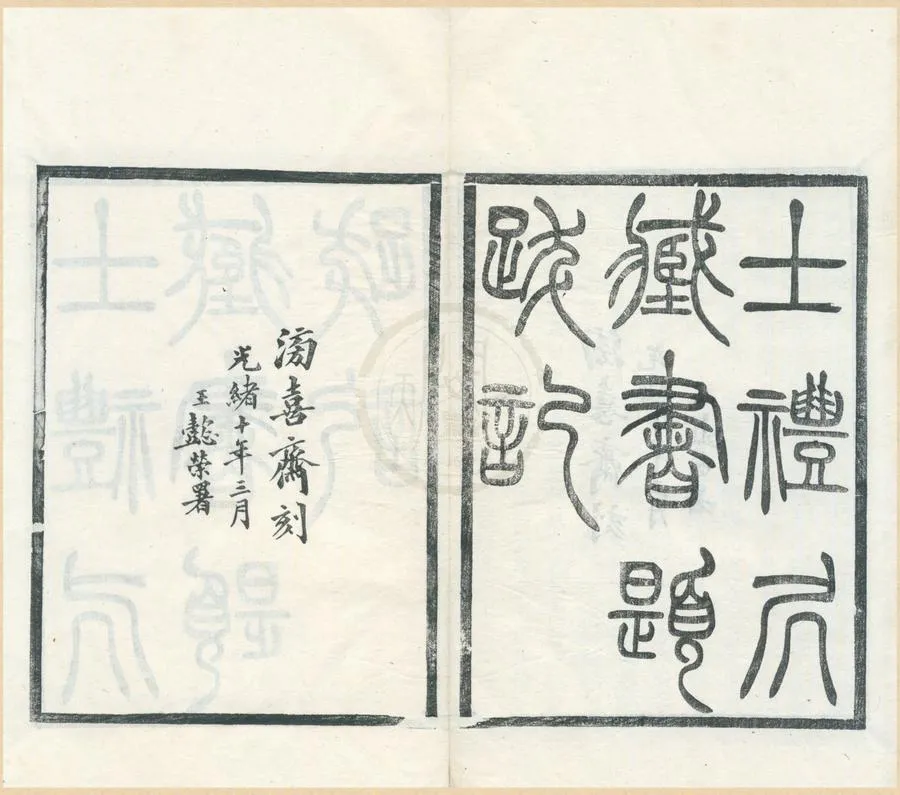 士禮居
藏書題
跋記
滂喜齋刻
光緒十年三月
王懿榮署